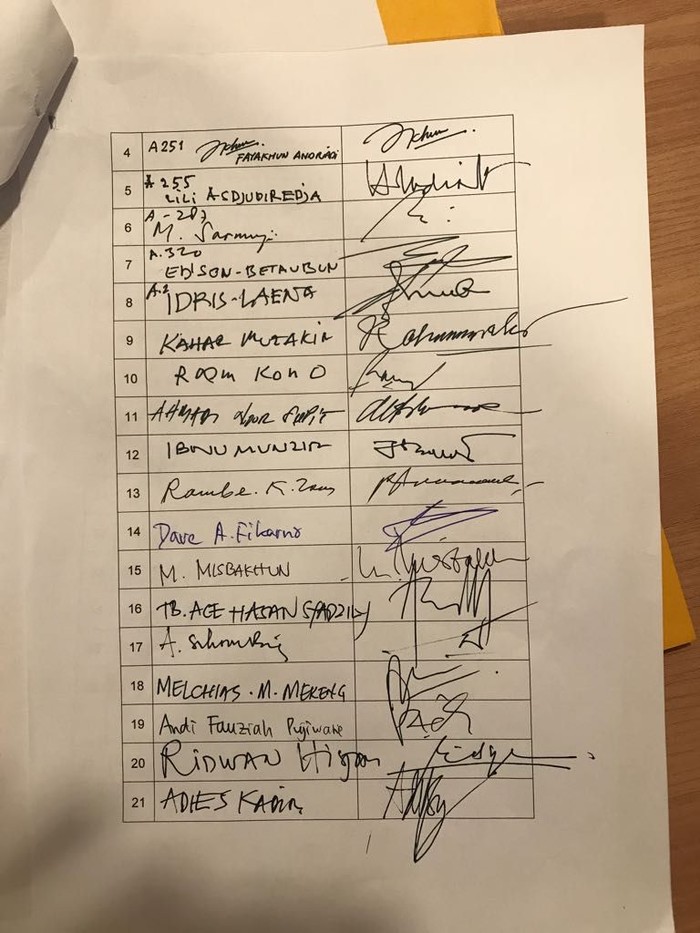 4 A251 FAYAKHUN ANDRIADI
5 A 255
LILI ASDJUDIREDJA
6 A.-287
M. Sarmuji
7 A.320
EDISON-BETAUBUN
8 A.2 IDRIS-LAENA
9 KAHAR MUZAKIR
10 ROEM KONO
11 AHMADI NOOR SUPIT
12 IBNU MUNZIR
13 Rambe. K. Zam
14 Dave A. Fikarno
15 M. MISBAKHUN
16 TB. ACE HASAN SYADZILY
17 A.
18 MELCHIAS. M. MEKENG
19 Andi Fauziah Pujiwatie
20 RIDWAN Hisjam
21 ADIES KADIR